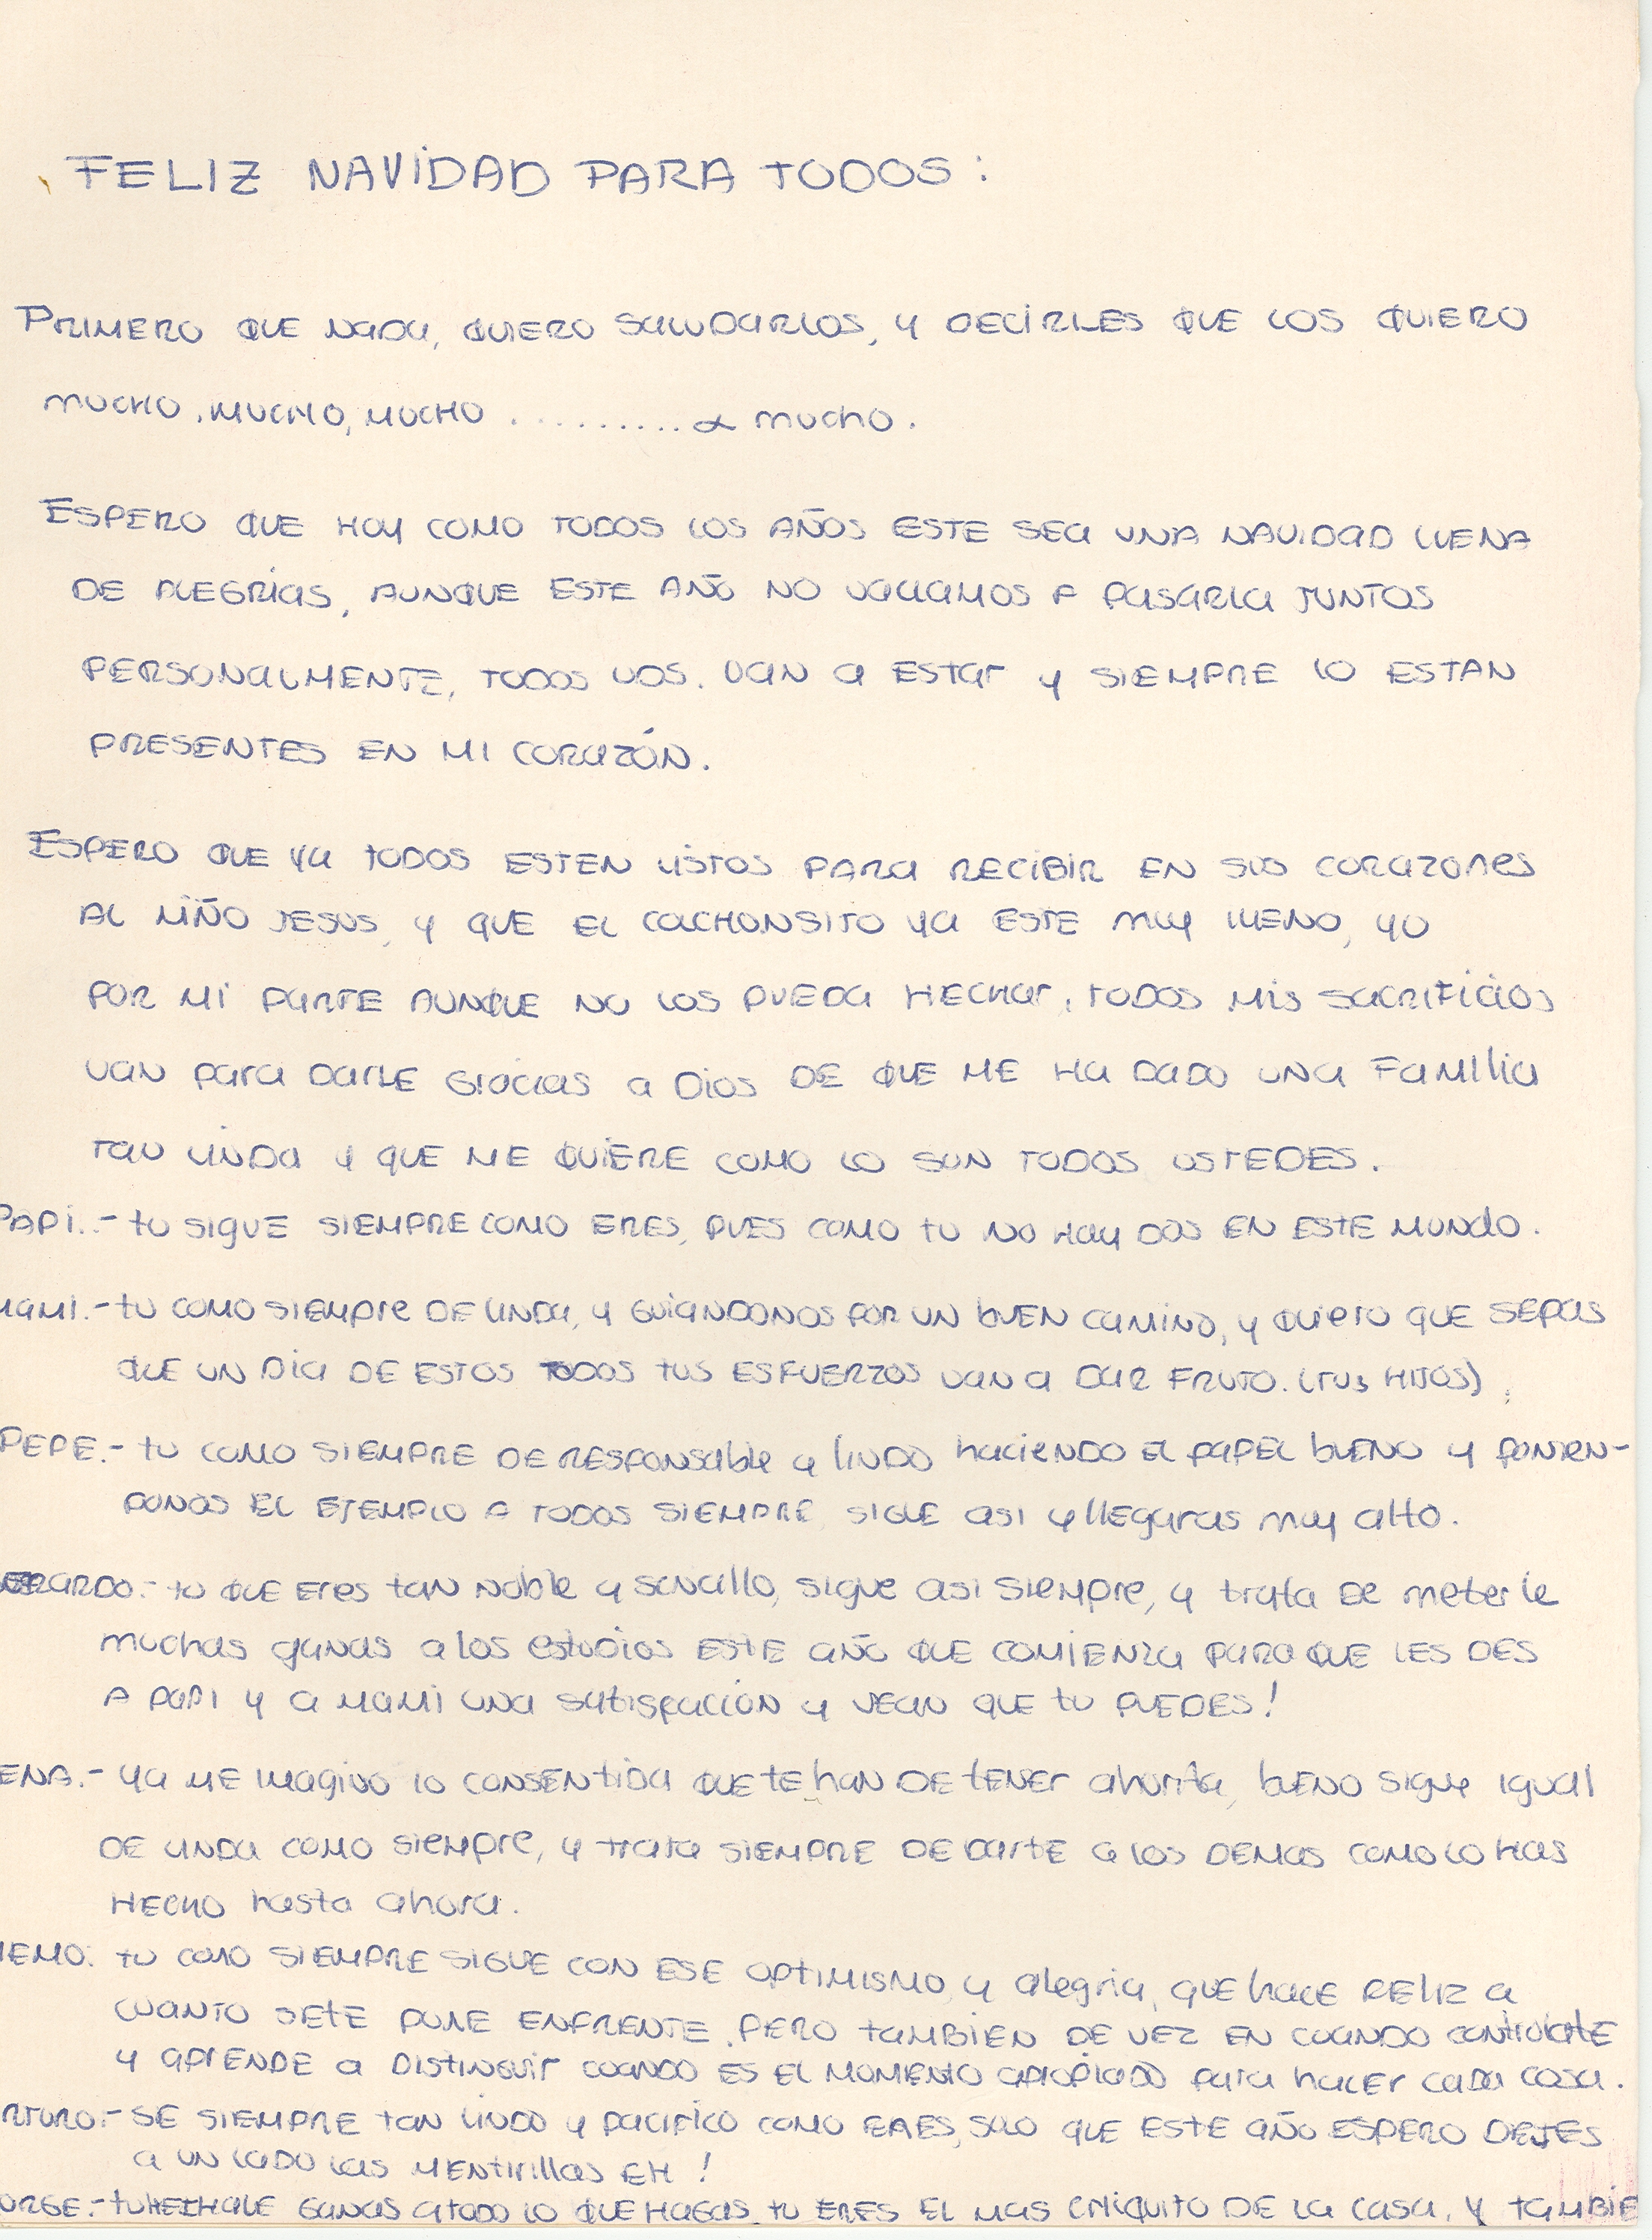 FELIZ NAVIDAD PARA TODOS:
PRIMERO QUE NADA, QUIERO SALUDARLOS, Y DECIRLES QUE LOS QUIERO
MUCHO, MUCHO, MUCHO .......... α MUCHO.
ESPERO QUE HOY COMO TODOS LOS AÑOS ESTE SEA UNA NAVIDAD LLENA
DE ALEGRIAS, AUNQUE ESTE AÑO NO VAYAMOS A PASARLA JUNTOS
PERSONALMENTE, TODOS UDS. VAN A ESTAR Y SIEMPRE LO ESTAN
PRESENTES EN MI CORAZÓN.
ESPERO QUE YA TODOS ESTEN LISTOS PARA RECIBIR EN SUS CORAZONES
AL NIÑO JESUS, Y QUE EL COLCHONSITO YA ESTE MUY LLENO, YO
POR MI PARTE AUNQUE NO LOS PUEDA HECHAR, TODOS MIS SACRIFICIOS
VAN PARA DARLE GRACIAS A DIOS DE QUE ME HA DADO UNA FAMILIA
TAN LINDA Y QUE ME QUIERE COMO LO SON TODOS USTEDES.
PAPI.- TU SIGUE SIEMPRE COMO ERES, PUES COMO TU NO HAY DOS EN ESTE MUNDO.
MAMI.- TU COMO SIEMPRE DE LINDA, Y GUIANDONOS POR UN BUEN CAMINO, Y QUIERO QUE SEPAS
QUE UN DIA DE ESTOS TODOS TUS ESFUERZOS VAN A DAR FRUTO. (TUS HIJOS).
PEPE.- TU COMO SIEMPRE DE RESPONSABLE Y LINDO HACIENDO EL PAPEL BUENO Y PONIEN-
DONOS EL EJEMPLO A TODOS SIEMPRE, SIGUE ASI Y LLEGARAS MUY ALTO.
GERARDO.- TU QUE ERES TAN NOBLE Y SENCILLO, SIGUE ASI SIEMPRE, Y TRATA DE METERLE
MUCHAS GANAS A LOS ESTUDIOS ESTE AÑO QUE COMIENZA PARA QUE LES DES
A PAPI Y A MAMI UNA SATISFACCIÓN Y VEAN QUE TU PUEDES!
ENA.- YA ME IMAGINO LO CONSENTIDA QUE TE HAN DE TENER AHORITA, BUENO SIGUE IGUAL
DE LINDA COMO SIEMPRE, Y TRATA SIEMPRE DE DARTE A LOS DEMAS COMO LO HAS
HECHO HASTA AHORA.
MEMO. TU COMO SIEMPRE SIGUE CON ESE OPTIMISMO, Y ALEGRIA, QUE HACE FELIZ A
CUANTO SETE PONE ENFRENTE, PERO TAMBIEN DE VEZ EN CUANDO CONTROLATE
Y APRENDE A DISTINGUIR CUANDO ES EL MOMENTO APROPIADO PARA HACER CADA COSA.
RTURO.- SE SIEMPRE TAN LINDO Y PACIFICO COMO ERES, SOLO QUE ESTE AÑO ESPERO DEJES
A UN LADO LAS MENTIRILLAS EH!
ORGE.- TU HECHALE GANAS A TODO LO QUE HAGAS, TU ERES EL MAS CHIQUITO DE LA CASA, Y TAMBIE